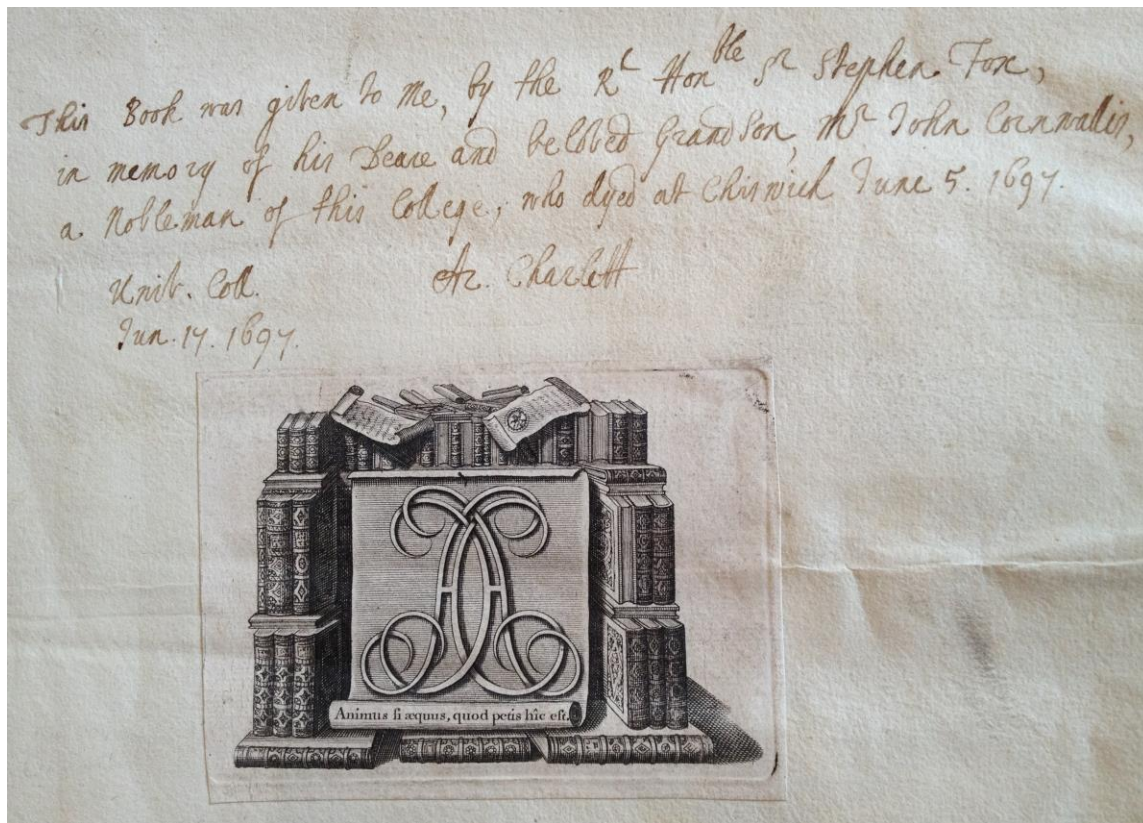 This Book was given to Me, by the Rt Honble Sr Stephen Fox,
in memory of his Deare and beloved Grandson, Mr John Cornwallis,
a Nobleman of this College, who dyed at Chiswick June 5. 1697.
Univ. Coll.
Ar. Charlett
Jun. 17. 1697.
Animus si æquus, quod petis hîc est.